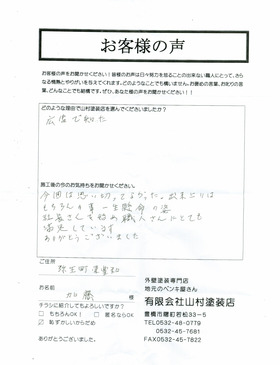 お客様の声
お客様の声をお聞かせください！皆様のお声は日々努力を怠ることの出来ない職人にとって、さらなる情熱とやりがいを与えてくれます。どのようなことでも構いません。お褒めの言葉、お叱りの言葉、どんなことでも結構です。ぜひ、あなた様のお声をお聞かせください！
どのような理由で山村塗装店を選んでくださいましたか？
広告で知た
施工後の今のお気持ちをお聞かせください！
今回は思い切ってよかった。出来ばえは
もちろんの事一生懸命の姿
社長さんを始め職人さんにとても
満足しています
ありがとうございました
ご住所
弥生町
お名前
加藤 様
チラシに紹介してもよろしいですか？
もちろんOK！ 匿名ならOK
恥ずかしいからだめ
ありがとうございました。
外壁塗装専門店
地元のペンキ屋さん
有限会社山村塗装店
豊橋市曙町若松33－5
TEL0532-48-0779
0532-45-7681
FAX0532-45-7822